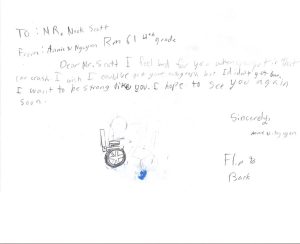 To: MR. Nick Scott
From: Annie N. Nguyen Rm 61 4th grade
Dear Mr. Scott I feel bad for you when you got in that
car crash. I wish I could've got your autograph but I didn't get
I want to be strong like you. I hope to see you again
soon.
Sincerely,
Annie N. Nguyen
Flip to
Back